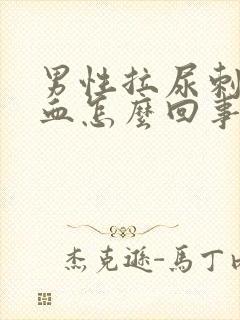 男性拉尿刺
血怎麼回事
杰克遜-馬丁